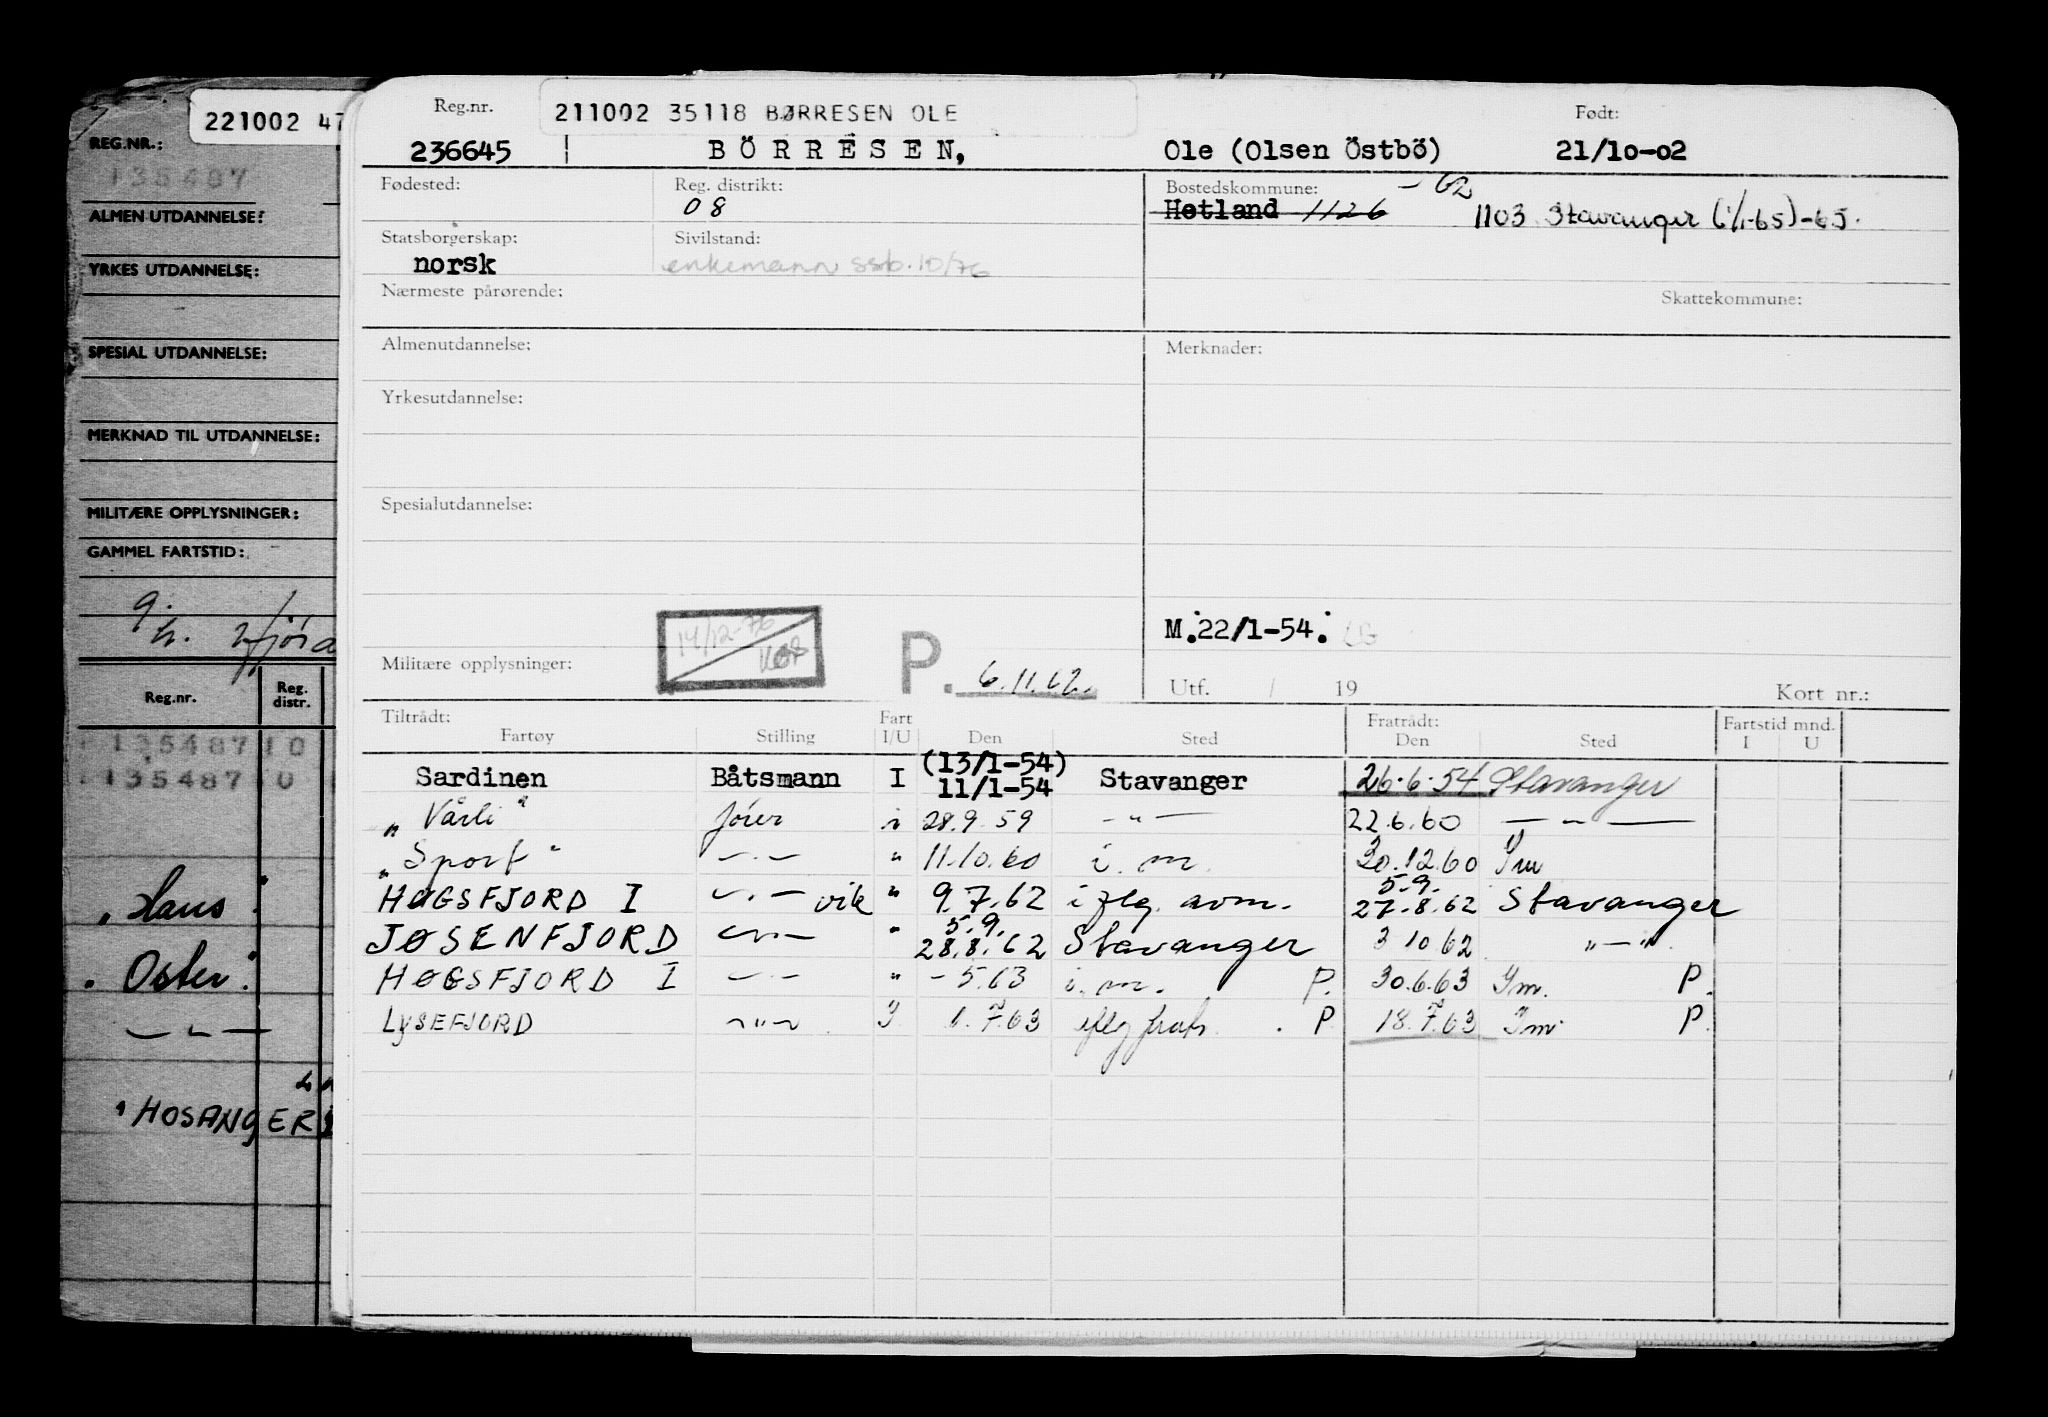 221002 47
REG.NR.:
135487
ALMEN UTDANNELSE:
YRKES UTDANNELSE:
SPESIAL UTDANNELSE:
MERKNAD TIL UTDANNELSE:
MILITÆRE OPPLYSNINGER:
GAMMEL FARTSTID:
Reg.nr. Reg. distr.
135487 10
135487 0
„Haus"
„Oster"
— " —
"HOSANGER
Reg.nr. 211002 35118 BØRRESEN OLE Født:
236645 BÖRRESEN, Ole (Olsen Östbö) 21/10-02
Fødested: Reg. distrikt: Bostedskommune: - 62
08 Hetland 1126 1103 Stavanger (1/1-65)-65.
Statsborgerskap: Sivilstand:
norsk enkemann ssb. 10/76
Nærmeste pårørende: Skattekommune:
Almenutdannelse: Merknader:
Yrkesutdannelse:
Spesialutdannelse:
14/12-76
M.22/1-54.
Militære opplysninger: P. 6.11.62.
Utf. / 19 Kort nr.:
Tiltrådt: Fart Fratrådt: Fartstid mnd.
Fartøy Stilling I/U Den Sted Den Sted I U
(13/1-54)
Sardinen Båtsmann I 11/1-54 Stavanger 26.6.54 Stavanger
„Vårli" Jórer i 28.9.59 — " — 22.6.60 — " —
„Sport" — " — " 11.10.60 i. m. 30.12.60 Im
5.9.
HØGSFJORD I — " — vik " 9.7.62 iflg. avm. 27.8.62 Stavanger
5.9.
JØSENFJORD — " — " 28.8.62 Stavanger 3 10 62 " — "
HØGSFJORD I — " — " - 5.63 i. m. P. 30.6.63 Im. P.
LYSEFJORD — " — I 1.7.63 iflg P 18.7.63 Im P.